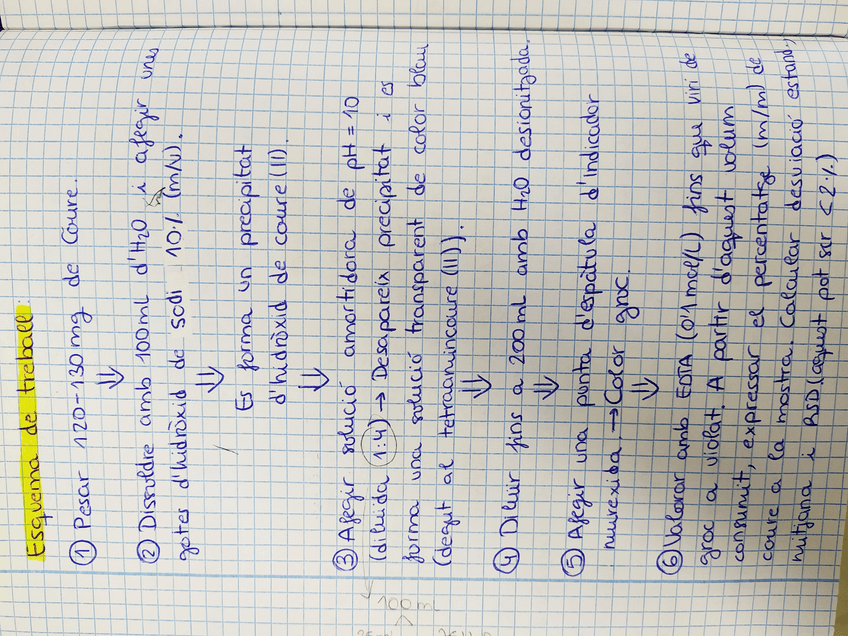 Esquema de treball:
① Pesar 120-130mg de Coure.
⇓
② Dissoldre amb 100ml d'H2O i afegir unes
gotes d'hidròxid de sodi 10% (m/v).
⇓
Es forma un precipitat
d'hidròxid de coure (II).
⇓
③ Afegir solució amortidora de pH = 10
(diluida 1:4) → Desapareix precipitat i es
forma una solució transparent de color blau
(degut al tetraamincoure (II)).
⇓
④ Diluir fins a 200 mL amb H2O desionitzada.
⇓
⑤ Afegir una punta d'espàtula d'indicador
murexida. → Color groc.
⇓
⑥ Valorar amb EDTA (0'1 mol/L) fins que viri de
groc a violat. A partir d'aquest volum
consumit, expressar el percentatge (m/m) de
coure a la mostra. Calcular desviació estand.,
mitjana i RSD (aquest pot ser < 2%)
100 mL